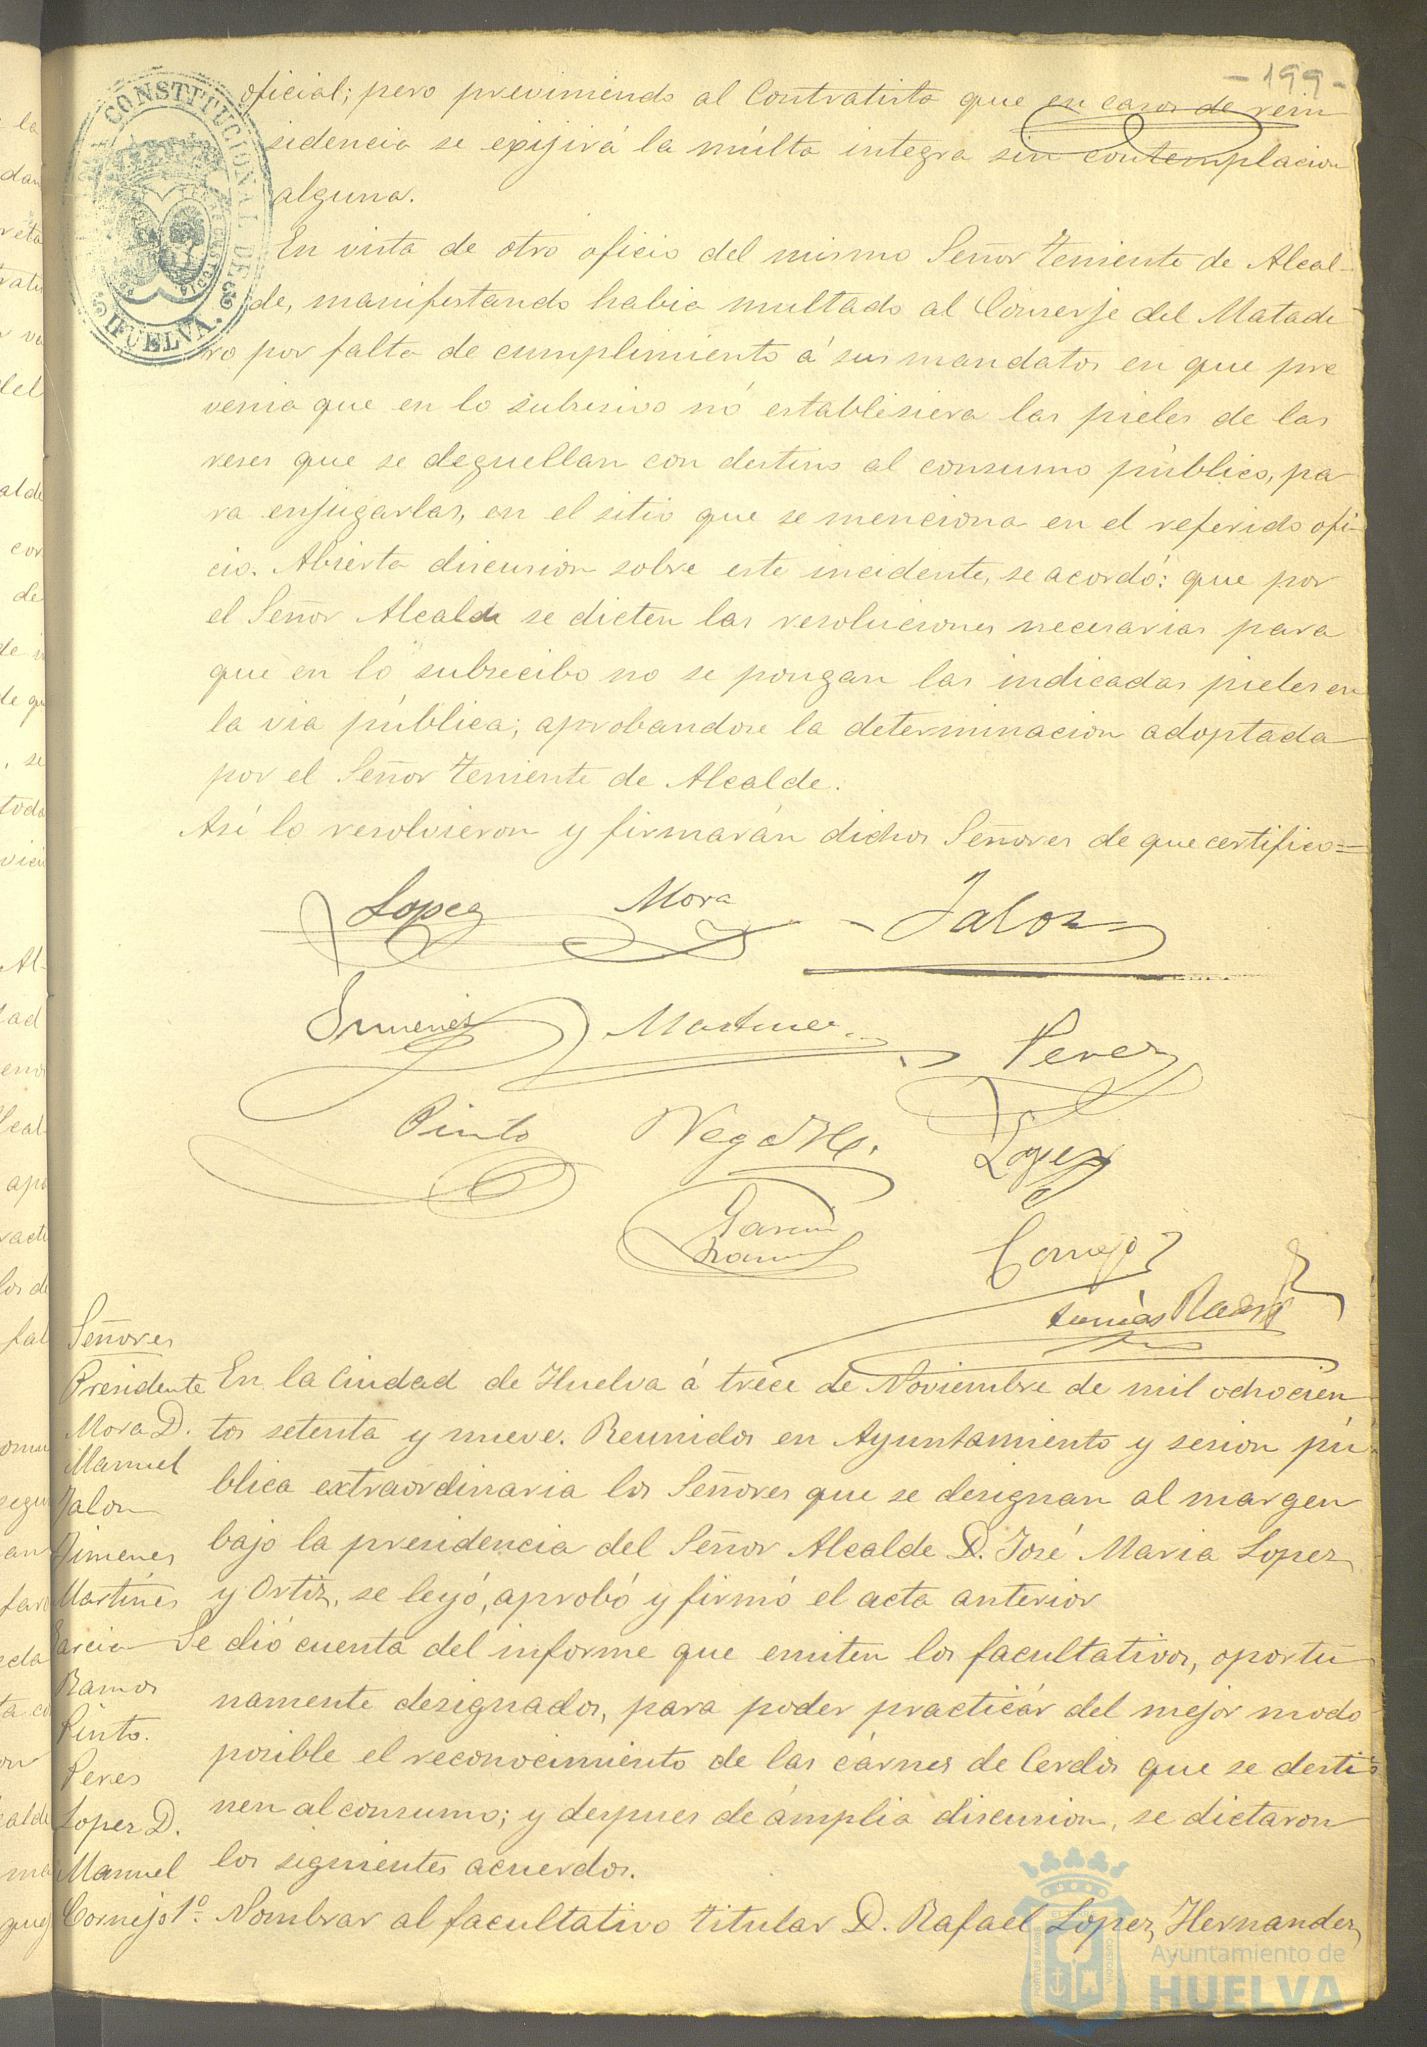 -199-
oficial; pero previniendo al Contratista que en casos de rein
sidencia se exijirá la múlta integra sin contemplacion
alguna.
En vista de otro oficio del mismo Señor Teniente de Alcal-
de, manifestando habia multado al Conserje del Matade
ro por falta de cumplimiento á sus mandatos en que pre
venia que en lo subsesivo nó establesiera las pieles de las
reses que se deguellan con destino al consumo público, pa-
ra enjugarlas, en el sitio que se menciona en el referido ofi-
cio. Abierta discusion sobre este incidente, se acordó: que por
el Señor Alcalde se dicten las resoluciones necesarias para
que en lo subsecibo no se pongan las indicadas pieles en
la via pública; aprobandose la determinacion adoptada
por el Señor Teniente de Alcalde.
Así lo resolvieron y firmarán dichos Señores de que certifico=
Lopez Mora Jalon
Jimenez Martinez Perez
Pinto Lopez
Garcia Cornejo
Ramos
Señores
Presidente
Mora D.
Manuel
Jalon
Jimenes
Martines
Garcia
Ramos
Pinto.
Peres
Lopez D.
Manuel
Cornejo
En la Ciudad de Huelva á trece de Noviembre de mil ochocien
tos setenta y nueve. Reunidos en Ayuntamiento y sesion pú-
blica extraordinaria los Señores que se designan al margen
bajo la presidencia del Señor Alcalde D. José Maria Lopez
y Ortiz, se leyó, aprobó y firmó el acta anterior
Se dió cuenta del informe que emiten los facultativos, oportu-
namente designados, para poder practicár del mejor modo
posible el reconocimiento de las cárnes de Cerdos que se desti-
nen al consumo; y despues de ámplia discusion, se dictaron
los siguientes acuerdos.
1º Nombrar al facultativo titular D. Rafael Lopez Hernandez
CONSTITUCIONAL DE HUELVA.
Ayuntamiento de
HUELVA